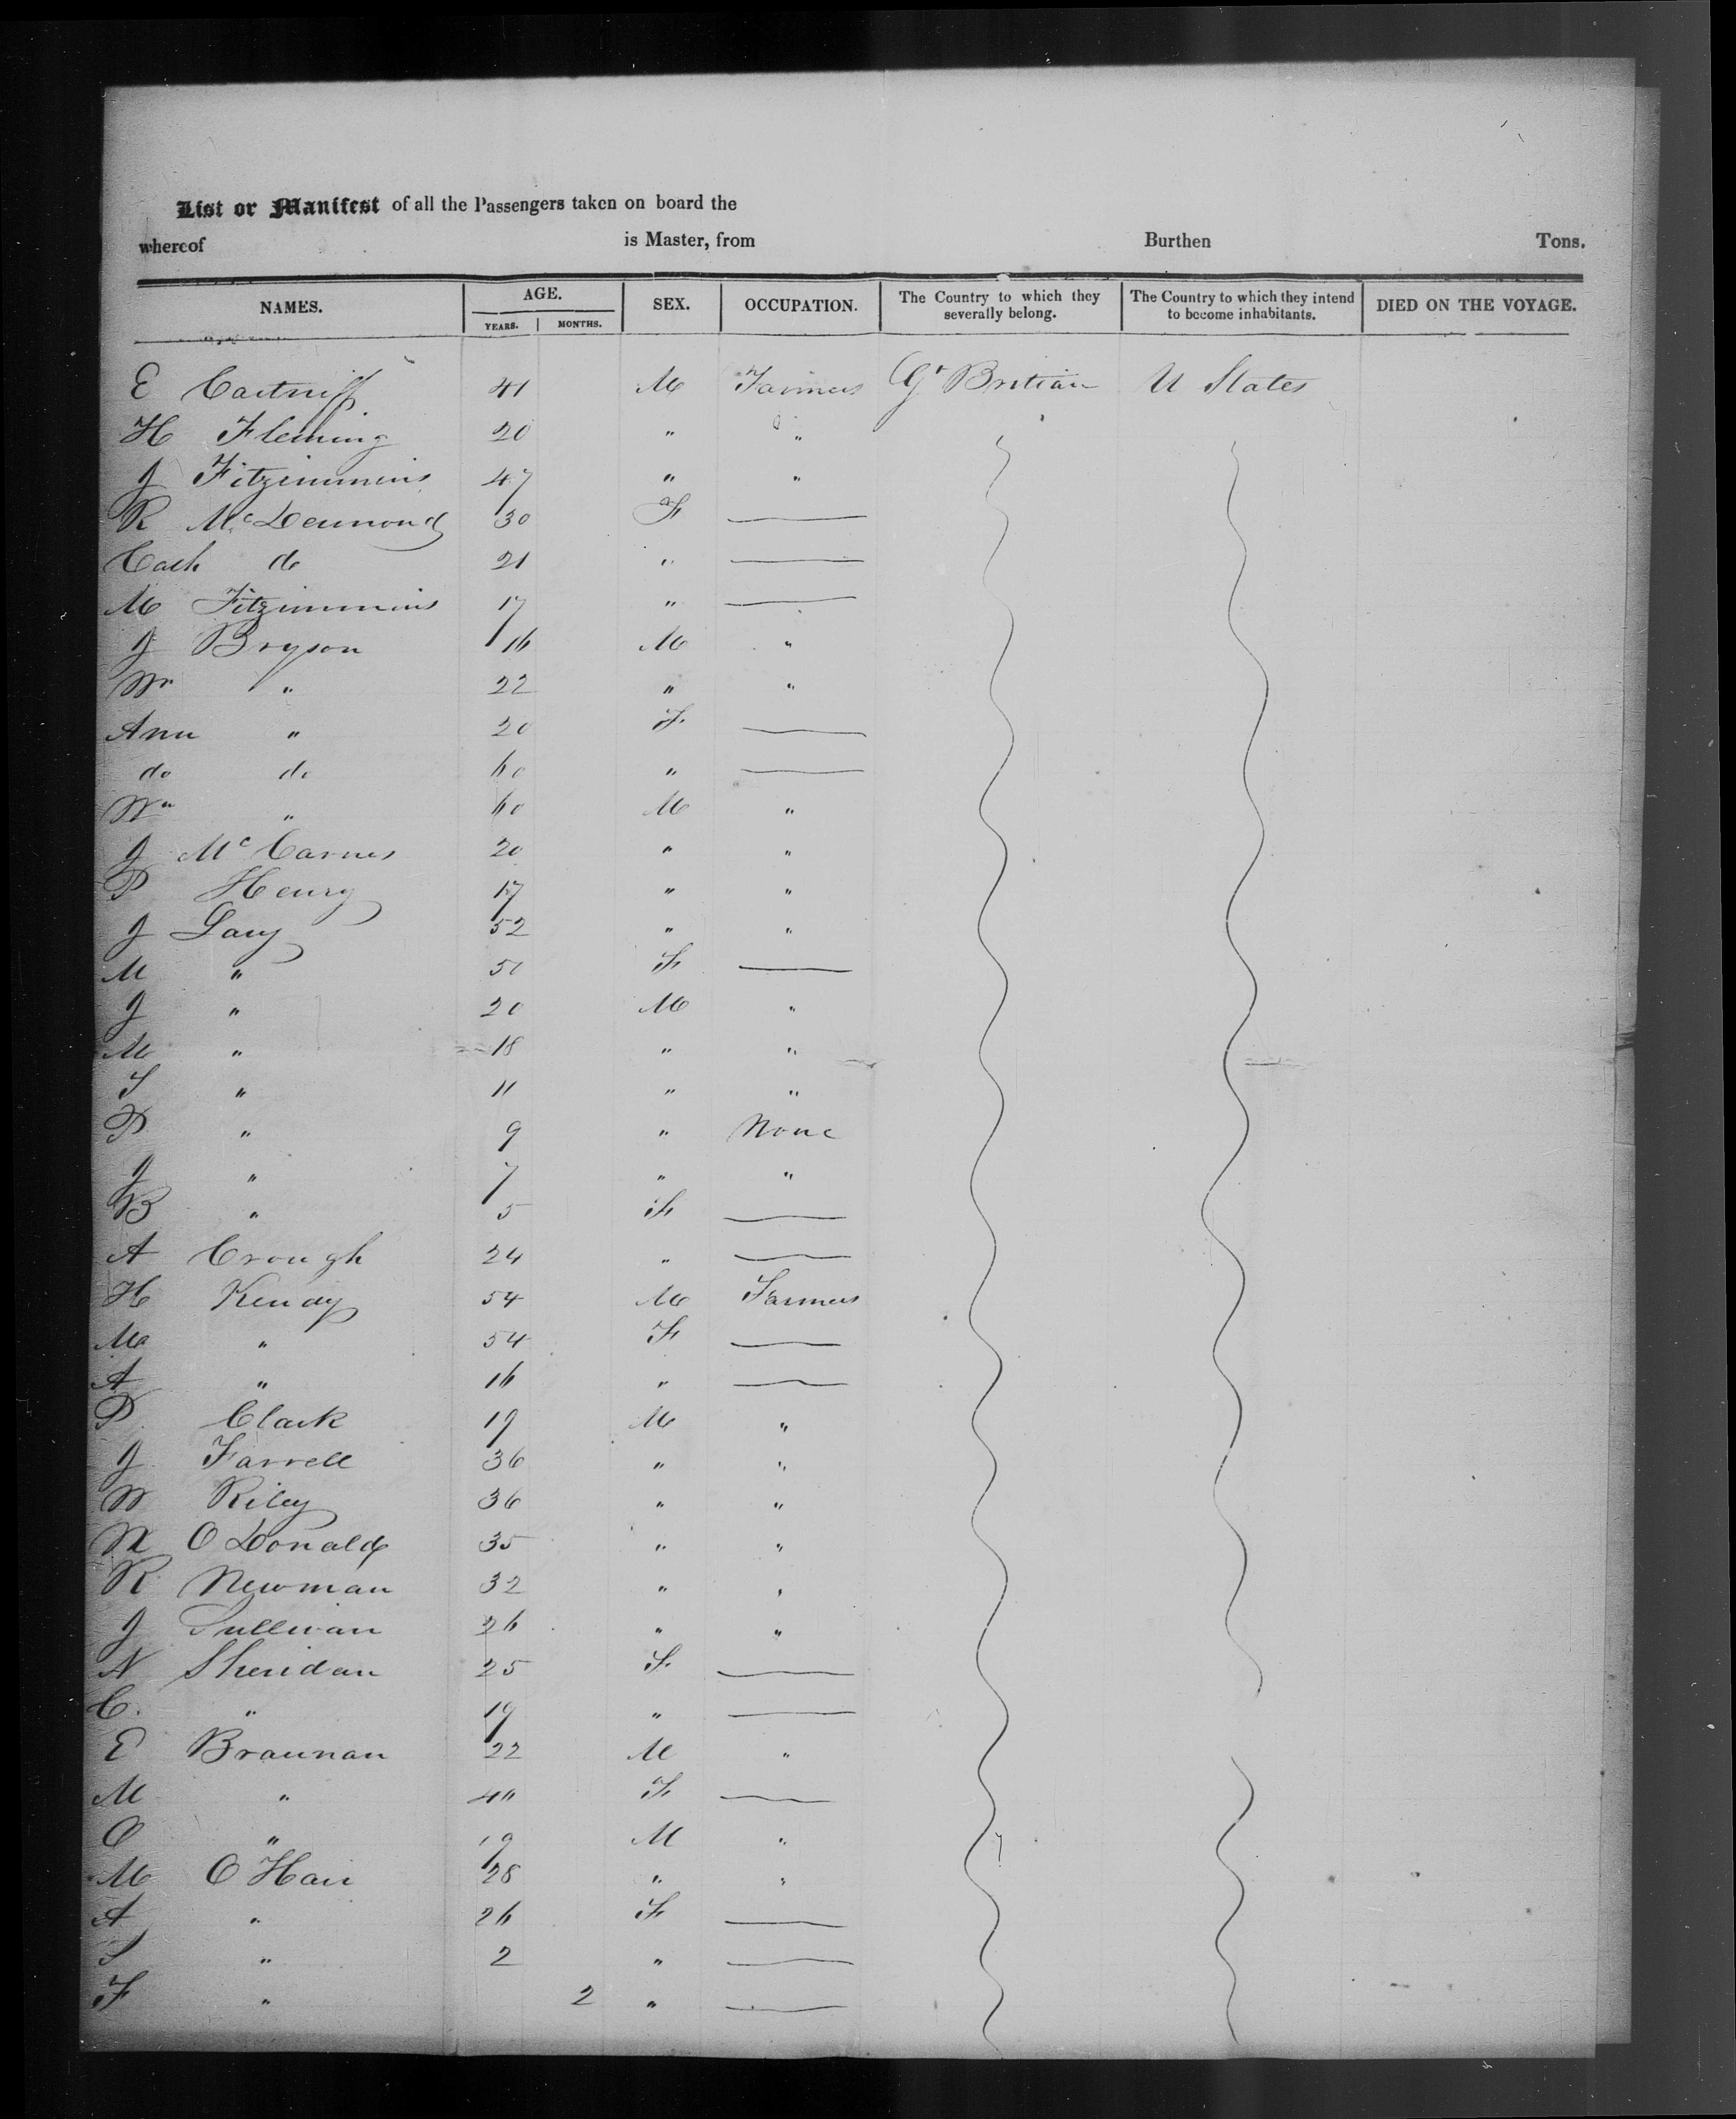 List or Manifest of all the Passengers taken on board the
whereof is Master, from Burthen Tons.
NAMES. AGE. SEX. OCCUPATION. The Country to which they severally belong. The Country to which they intend to become inhabitants. DIED ON THE VOYAGE.
YEARS. MONTHS.
E 41 M Farmer Gt Britian U States
H Fleming 20 " "
J Fitzimmins 47 " "
R McDermond 30 F —
Cath do 21 " —
M Fitzimmins 17 " —
J Bryson 16 M "
Wm " 22 " "
Ann " 20 F —
do do 60 " —
Wm " 60 M "
J McCarnes 20 " "
P Henry 17 " "
J 52 " "
M " 50 F —
J " 20 M "
M " 18 " "
S " 11 " "
P " 9 " None
J " 7 " "
B " 5 F —
A Crough 24 " —
H Kenay 54 M Farmer
Ma " 54 F —
A " 16 " —
P Clark 19 M "
J Farrell 36 " "
W Riley 36 " "
M O Donald 35 " "
R Newman 32 " "
J Sullivan 26 " "
N Sheridan 25 F —
C. " 19 " —
E Braunan 22 M "
M " 40 F —
O " 19 M "
M O Hair 28 " "
A " 26 F —
S " 2 " —
F " 2 " —